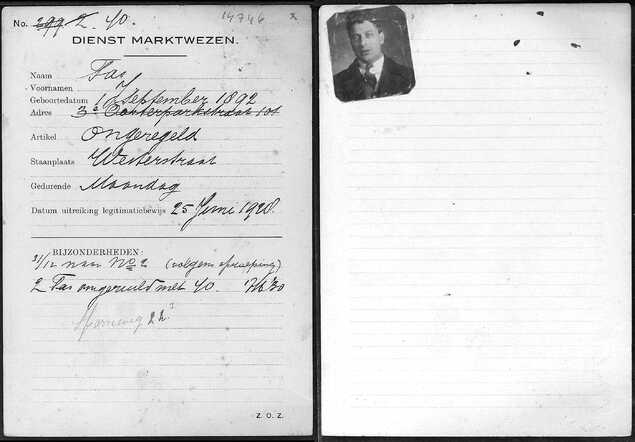 No. 299 2. 40. 14746 x
DIENST MARKTWEZEN.
Naam Fas
Voornamen J
Geboortedatum 1 September 1892
Adres 3e Oosterparkstraat 101
Artikel Ongeregeld
Staanplaats Westerstraat
Gedurende Maandag
Datum uitreiking legitimatiebewijs 25 Juni 1928.
BIJZONDERHEDEN:
31/12 naar No 2 (volgens afroeping)
2 Fas omgeruild met 40.
22
Z. O. Z.